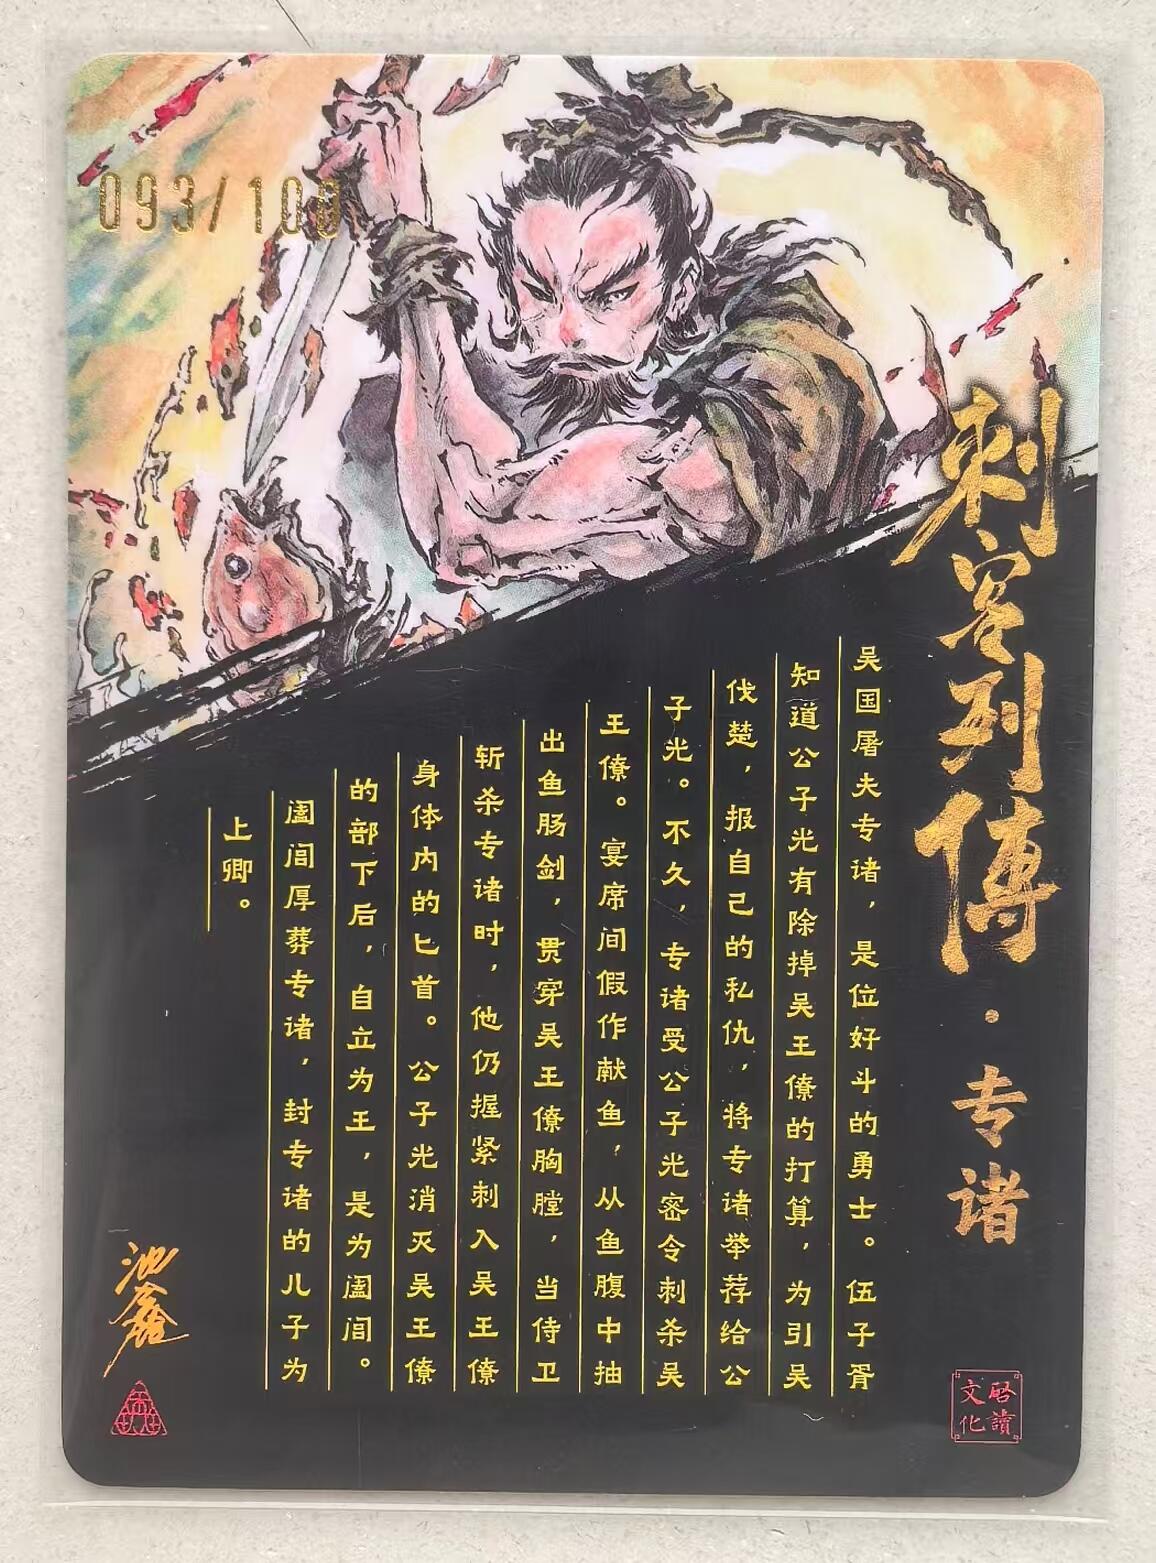 093/100
刺客列傳·专诸
吴国屠夫专诸，是位好斗的勇士。伍子胥
知道公子光有除掉吴王僚的打算，为引吴
伐楚，报自己的私仇，将专诸举荐给公
子光。不久，专诸受公子光密令刺杀吴
王僚。宴席间假作献鱼，从鱼腹中抽
出鱼肠剑，贯穿吴王僚胸膛，当侍卫
斩杀专诸时，他仍握紧刺入吴王僚
身体内的匕首。公子光消灭吴王僚
的部下后，自立为王，是为阖闾。
阖闾厚葬专诸，封专诸的儿子为
上卿。
池鑫
启讀
文化